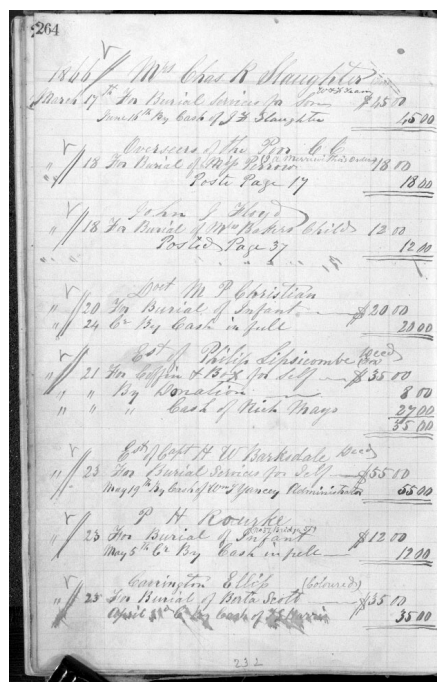 264
1866 Mrs Chas R Slaughter
March 17th For Burial Services for Son $45 00
June 16th By Cash of J F Slaughter 45 00
Overseers of the Poor C.C.
" 18 For Burial of Miss Perrow 18 00
Posted Page 17 18 00
John J Floyd
" 18 For Burial of Mrs Bakers Child 12 00
Posted Page 37 12 00
Doct M P Christian
" 20 For Burial of Infant $20 00
" 24 Cr By Cash in full 20 00
Est of Philip Lipsicombe Decd
" 21 For Coffin & Box for Self $35 00
" " By Donation 8 00
" " " Cash of Rich Mays 27 00
35 00
Est of Capt H W Barksdale Decd
" 23 For Burial Services for Self $55 00
May 19th By Cash of Wm T Yancey Administrator 55 00
P H Rourke
" 23 For Burial of Infant $12 00
May 5th Cr By Cash in full 12 00
Covrington Ellis (Coloured)
" 25 For Burial of Berta Scott $35 00
April Cr By Cash of Harris 35 00
232